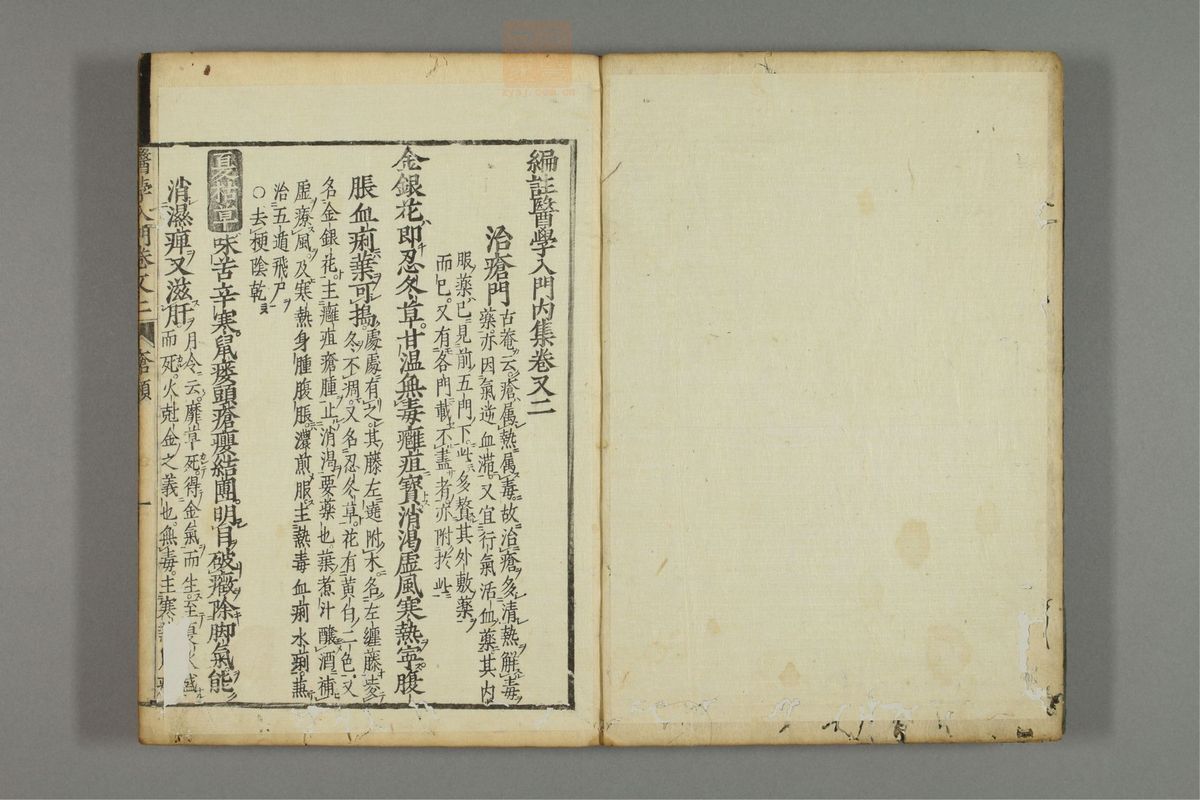 編註醫學入門内集卷又二
治瘡門
古菴云瘡属熱属毒故治瘡多清熱解毒
藥亦因氣逆血滯又宜行氣活血藥其内
服藥已見前五門下此多贅其外敷藥
而已又有各門載不盡者亦附於此
金銀花即忍冬草甘温無毒癰疽寳消渴虚風寒熱寧腹
脹血痢葉可搗
處處有之其藤左遶附木名左纏藤凌
冬不凋又名忍冬草花有黄白二色又
名金銀花主癰疽瘡腫止消渴要藥也葉煮汁釀酒補
虚療風及寒熱身腫腹脹濃煎服主熱毒血痢水痢兼
治五遁飛尸
○去梗陰乾
夏枯草味苦辛寒鼠瘻頭瘡癭結團明目破癥除脚氣能
消濕痺又滋肝
月令云靡草死得金氣而生至夏火盛
而死火尅金之義也無毒主寒
醫學入門卷又二
瘡類
一